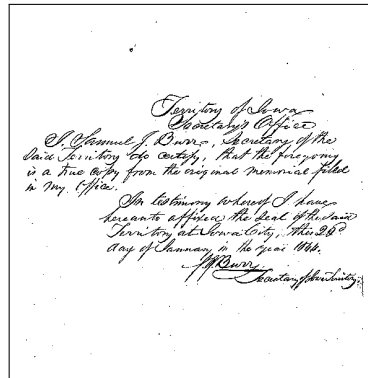 Territory of Iowa
Secretary's Office
I, Samuel J. Burr, Secretary of the
Said Territory do certify, that the foregoing
is a true copy from the original memorial filed
in my Office.
In testimony whereof I have
hereunto affixed the Seal of the said
Territory at Iowa City, this 26th
day of January in the year 1844.
S J Burr
Secretary of Iowa Territory